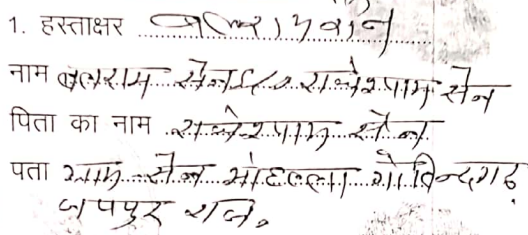 1. हस्ताक्षर
नाम बलराम सेन S/o राधेश्याम सेन
पिता का नाम राधेश्याम सेन
पता ग्राम सेन मोहल्ला गोविन्दगढ़
जयपुर राज.